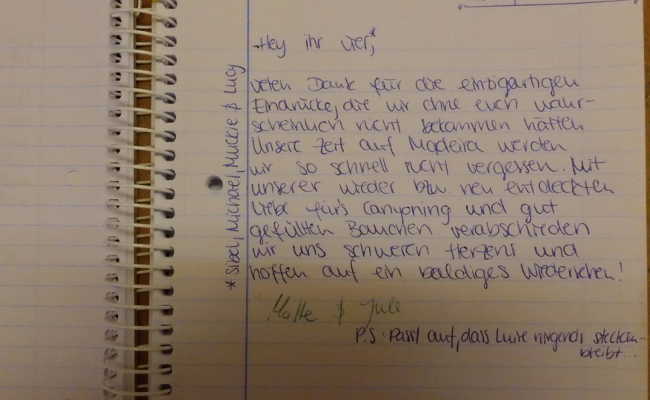 Hey ihr vier,*
vielen Dank für die einzigartigen
Eindrücke, die wir ohne euch wahr-
scheinlich nicht bekommen hätten
Unsere Zeit auf Madeira werden
wir so schnell nicht vergessen. Mit
unserer wieder bzw. neu entdeckten
Liebe für's Canyoning und gut
gefüllten Bäuchen verabschieden
wir uns schweren Herzens und
hoffen auf ein baldiges Wiedersehen!
Malte & Jule
P.S. Passt auf, dass nirgends stecken-
bleibt...
* Sibel, Michael, Muckie & Lucy